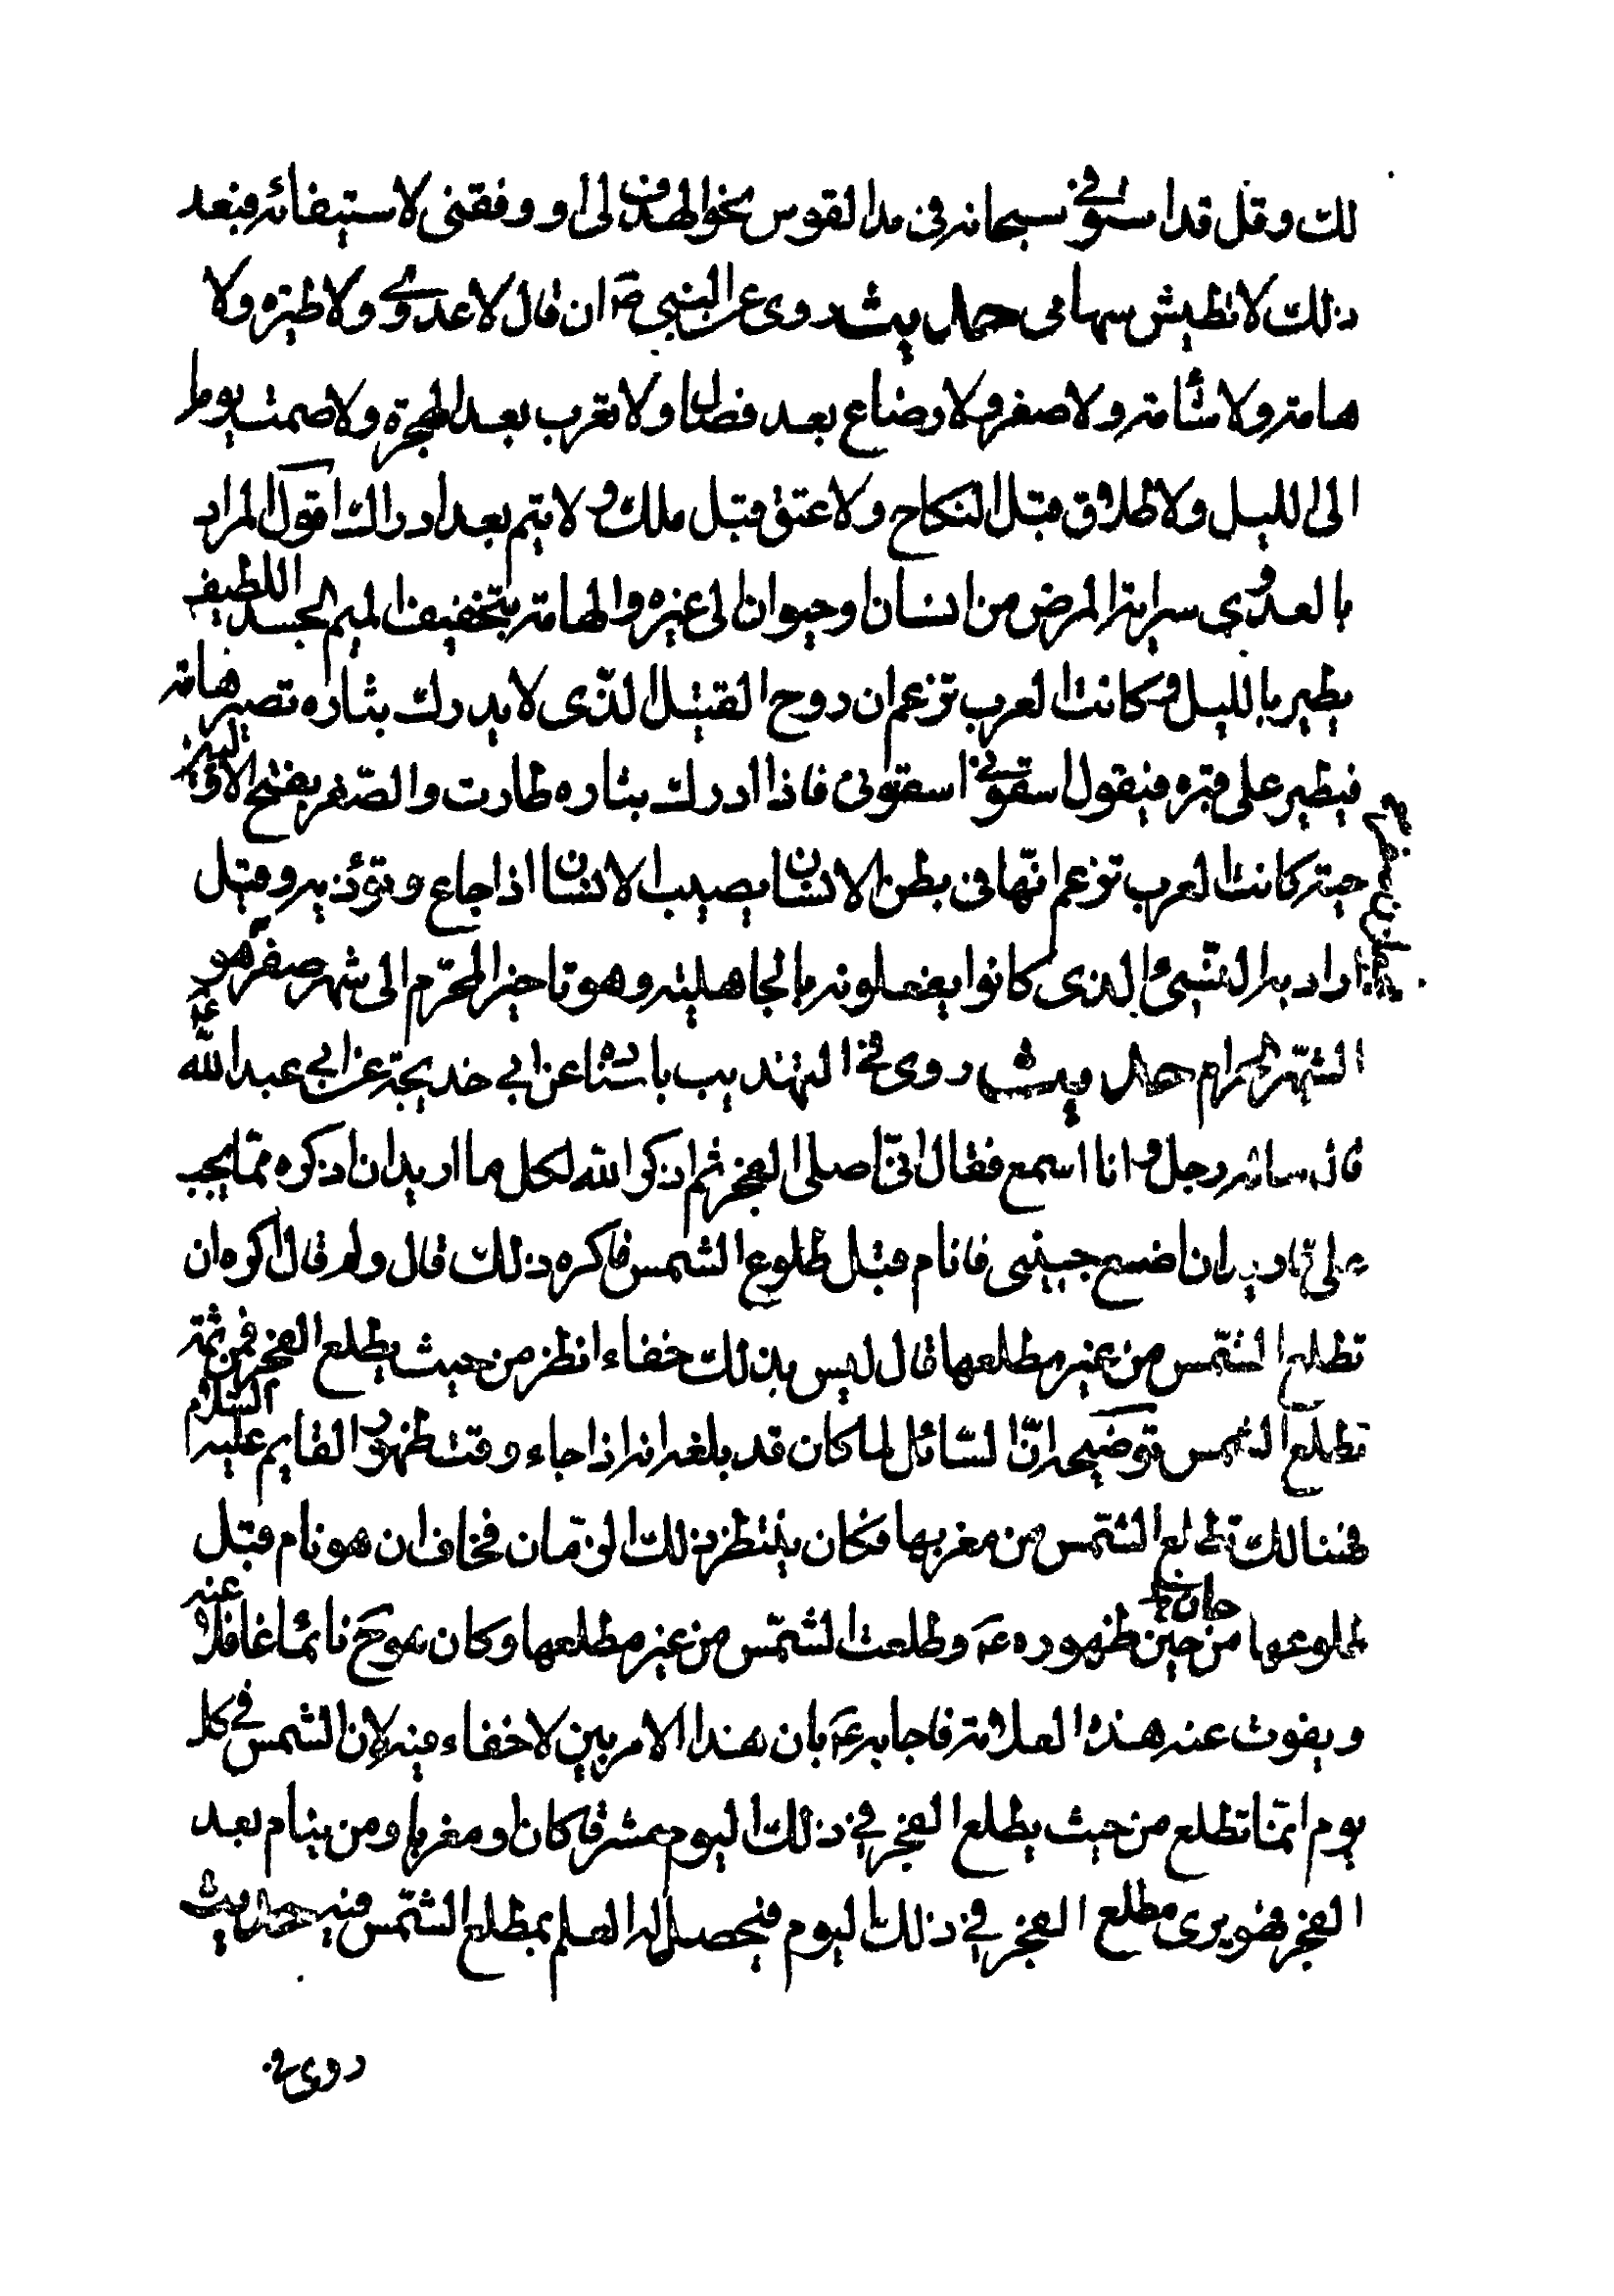 لك وقل قد استوفى سبحانه فى مد القوس نحو الهدف الى او وفقنى لاستيفائه فبعد
ذلك لا تطيش سهامى حديث روى عن النبي ص ان قال لا عدوى ولا طيره ولا
هامة ولا شامة ولا صفر ولا رضاع بعد فصال ولا تعرب بعد الهجرة ولا صمت يوما
الى الليل ولا طلاق قبل النكاح ولا عتق قبل ملك ولا يتم بعد ادراك اقول المراد
بالعدوي سراية المرض من انسان او حيوان الى غيره والهامة بتخفيف الميم الجسد اللطيف
يطير بالليل وكانت العرب تزعم ان روح القتيل الذى لا يدرك بثاره تصير هامة
فيطير على قبره فيقول اسقونى اسقونى فاذا ادرك بثاره طارت والصفر بفتح الاولين
حية كانت العرب تزعم انها فى بطن الانسان يصيب الانسان اذا جاع وتؤذيه وقيل
اراد به النسئ الذى كانوا يفعلونه بالجاهلية وهو تاخير المحرم الى شهر صفر هو
الشهر الحرام حديث روى في التهذيب باسناده عن ابي خديجة عن ابي عبد الله ع
قال ساله رجل وانا اسمع فقال انى اصلى الفجر ثم اذكر الله لكل ما اريد ان اذكره مما يجب
على فاريد ان اضع جبينى فانام قبل طلوع الشمس فاكره ذلك قال ولم قال اكره ان
تطلع الشمس من غير مطلعها قال ليس بذلك خفاء انظر من حيث يطلع الفجر فمن ثمة
تطلع الشمس توضيحه ان السائل لما كان قد بلغه انه اذا جاء وقت ظهور القايم عليه السلام
فهنالك تطلع الشمس من مغربها فكان ينتظر ذلك الزمان فخاف ان هو نام قبل
طلوعها من حين ظهوره ع وطلعت الشمس من غير مطلعها وكان هو ح نائما غافلا عنه
ويفوت عنه هذه العلامة فاجابه ع بان هذا الامر بين لا خفاء فيه لان الشمس في كل
يوم انما تطلع من حيث يطلع الفجر في ذلك اليوم مشرقا كان او مغربا ومن ينام بعد
الفجر فهو يرى مطلع الفجر في ذلك اليوم فيحصل له العلم بمطلع الشمس فيه حديث
روى في